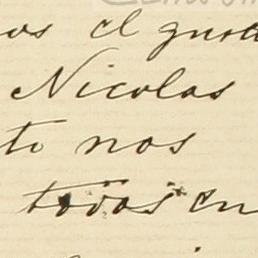 os el gusto
Nicolas
te nos
todos en